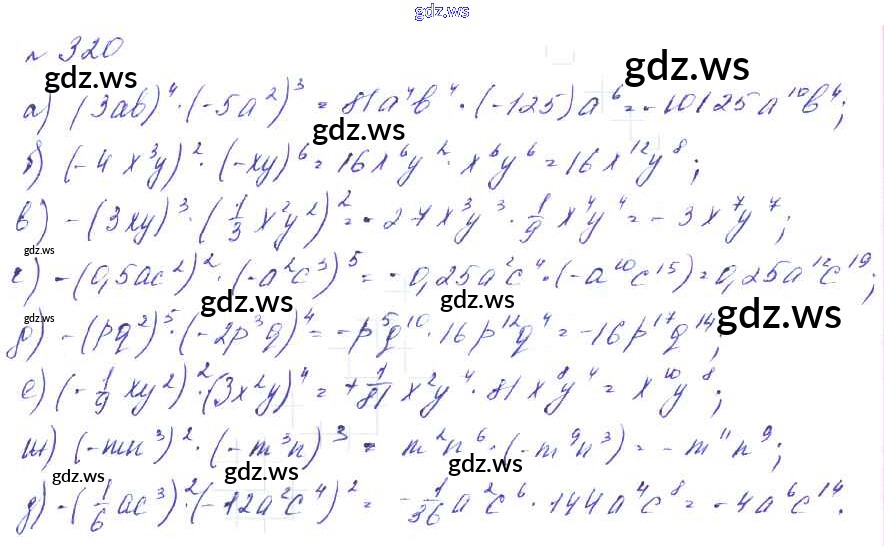 gdz.ws
№ 320
gdz.ws gdz.ws
а) (3ab)⁴·(-5a²)³ = 81a⁴b⁴·(-125)a⁶ = -10125a¹⁰b⁴;
gdz.ws
б) (-4x³y)²·(-xy)⁶ = 16x⁶y²·x⁶y⁶ = 16x¹²y⁸;
в) -(3xy)³·(1/3 x²y²)² = -27x³y³·1/9 x⁴y⁴ = -3x⁷y⁷;
gdz.ws
г) -(0,5ac²)²·(-a²c³)⁵ = -0,25a²c⁴·(-a¹⁰c¹⁵) = 0,25a¹²c¹⁹;
gdz.ws gdz.ws gdz.ws gdz.ws
д) -(pq²)⁵·(-2p³q)⁴ = -p⁵q¹⁰·16p¹²q⁴ = -16p¹⁷q¹⁴;
е) (-1/9 xy²)²·(3x²y)⁴ = +1/81 x²y⁴·81x⁸y⁴ = x¹⁰y⁸;
ж) (-mn³)²·(-m³n)³ = m²n⁶·(-m⁹n³) = -m¹¹n⁹;
gdz.ws gdz.ws gdz.ws gdz.ws
д) -(1/6 ac³)²·(-12a²c⁴)² = -1/36 a²c⁶·144a⁴c⁸ = -4a⁶c¹⁴.
gdz.ws